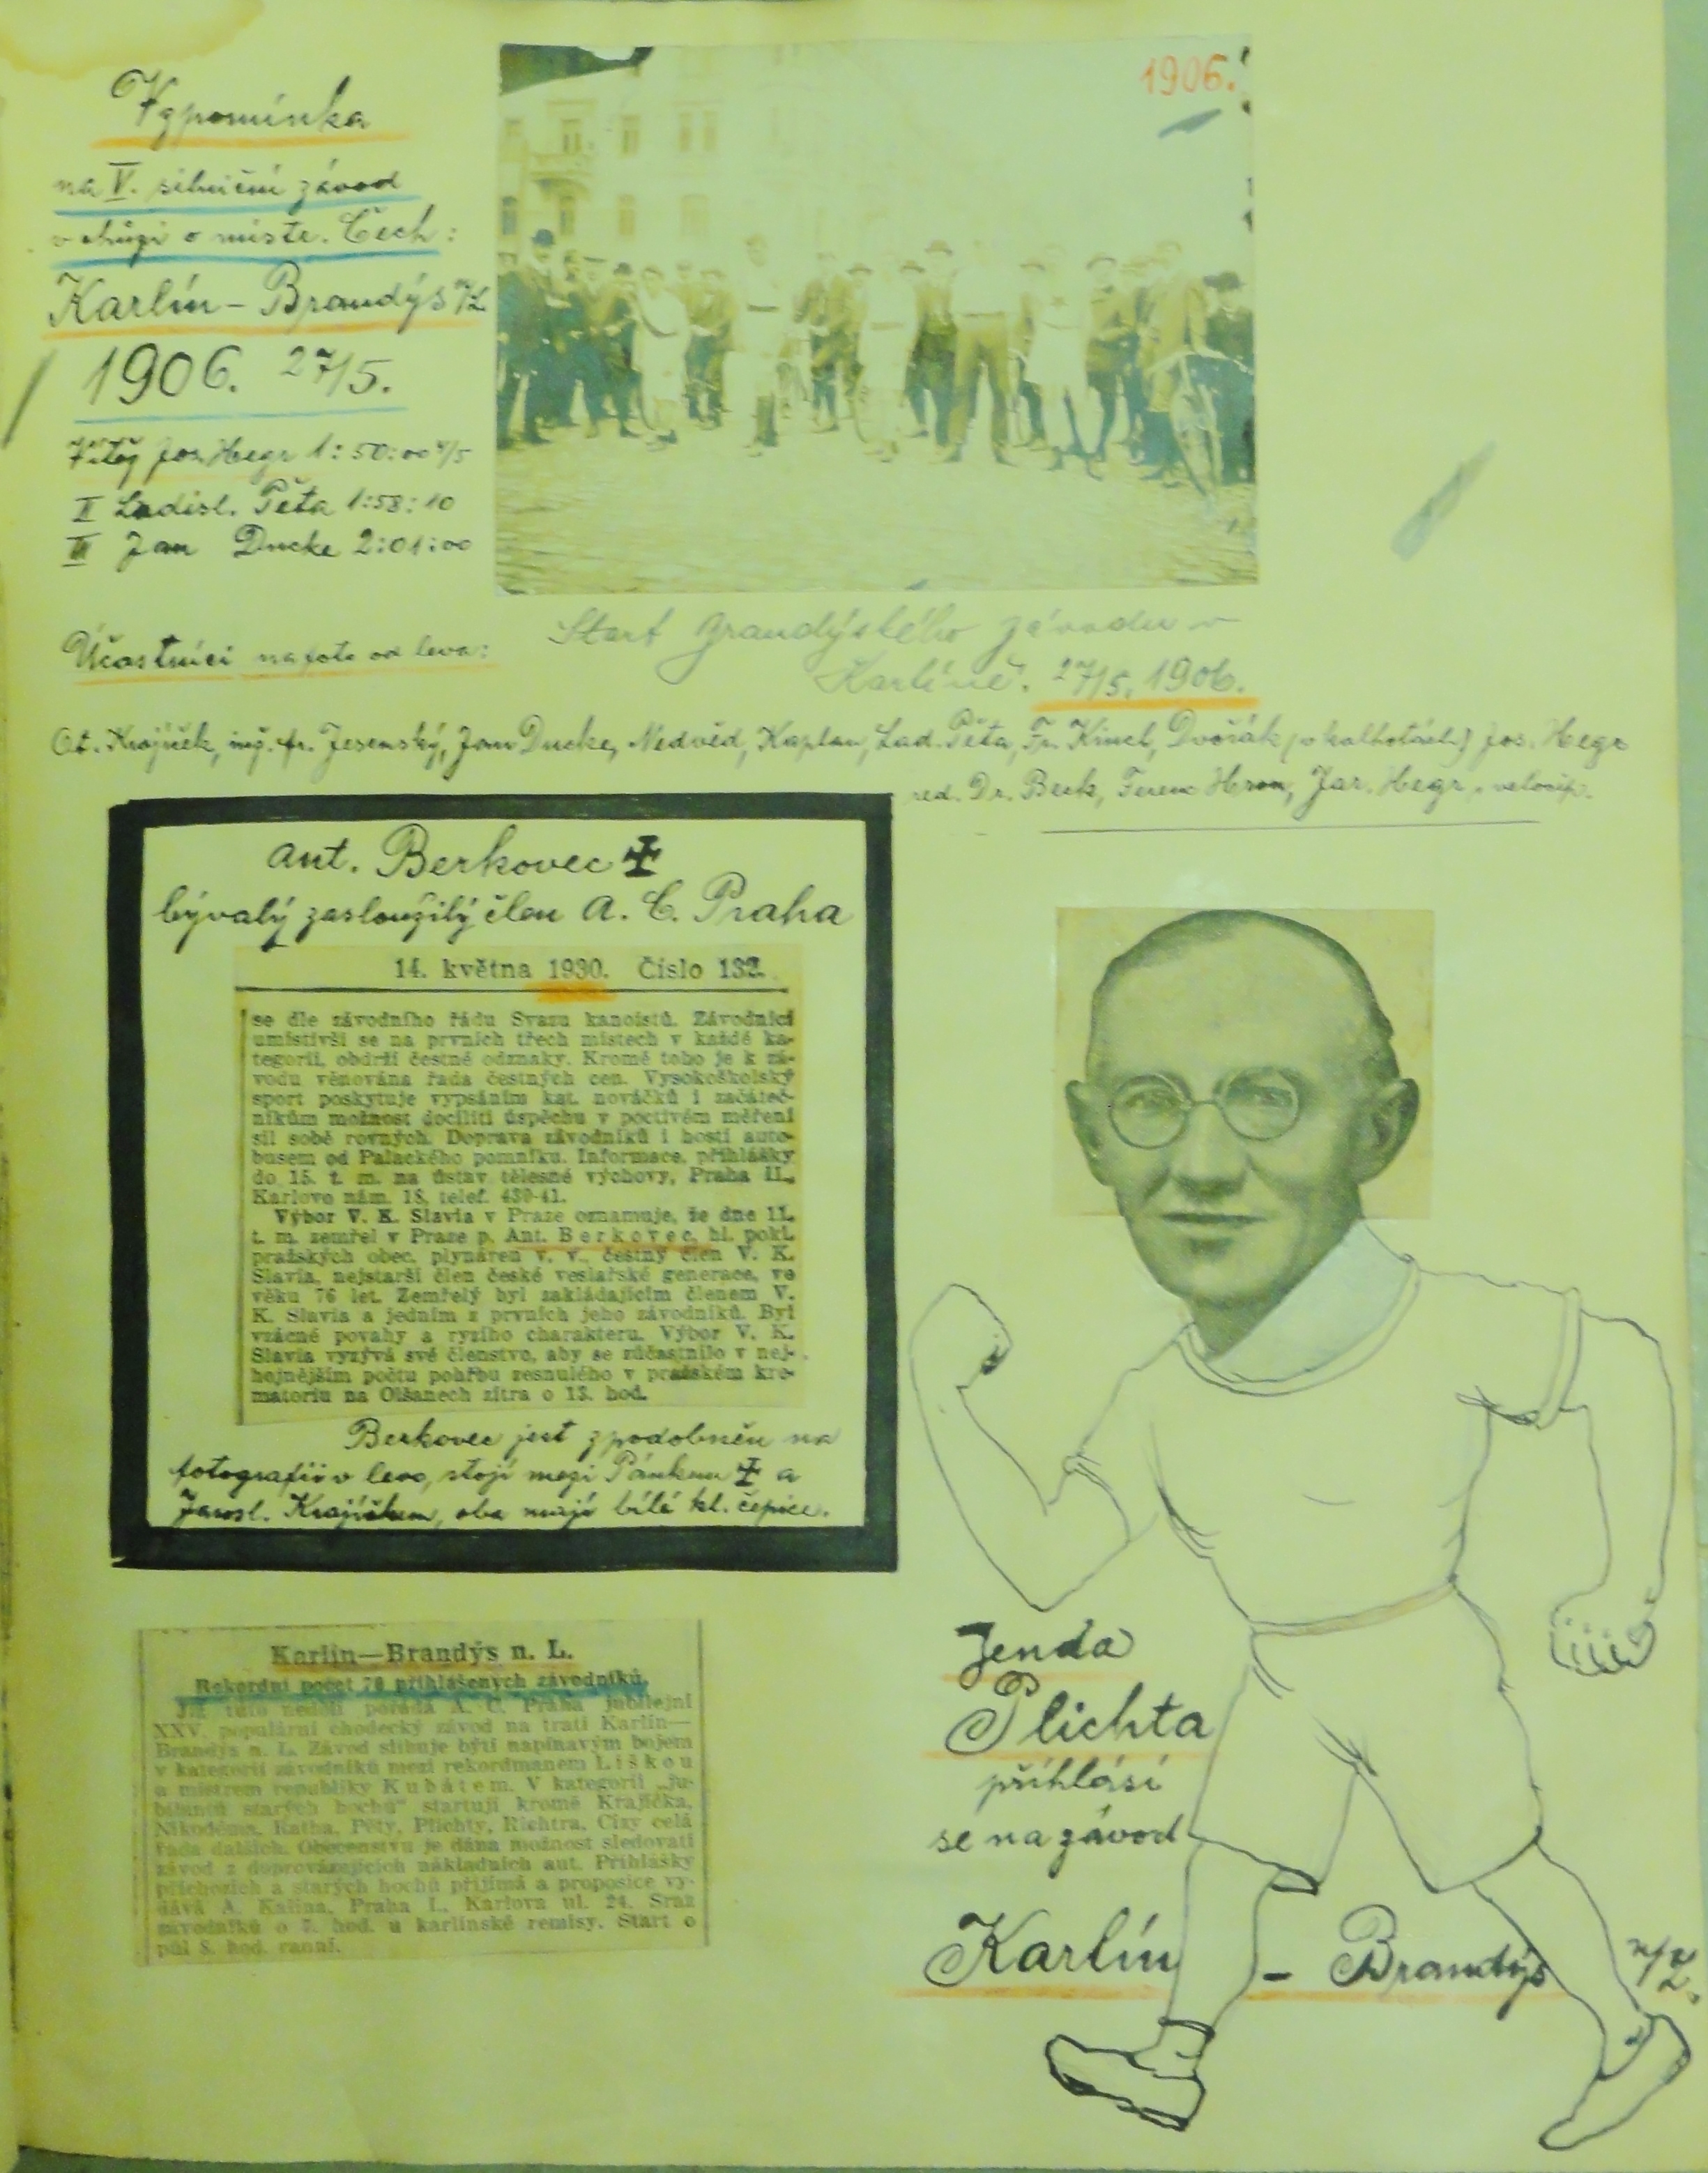 Vzpomínka
na V. silniční závod
v chůzi o mistr. Čech:
Karlín – Brandýs n/L.
1906. 27/5.
Vítěz Jos. Hegr 1:50:00 4/5
II Ladisl. Pěta 1:58:10
III Jan Ducke 2:01:00
1906.
Start Brandýského závodu v
Karlíně. 27/5. 1906.
Účastníci na foto od leva:
Ot. Krajíček, ing. fr. Jesenský, Jan Ducke, Nedvěd, Kaplan, Lad. Pěta, Fr. Kincl, Dvořák (v kalhotách) Jos. Hegr
red. Dr. Beck, Ferenc Hron, Jar. Hegr, velocip.
Ant. Berkovec
bývalý zasloužilý člen A. C. Praha
14. května 1930. Číslo 132.
se dle závodního řádu Svazu kanoistů. Závodníci
umístivší se na prvních třech místech v každé ka-
tegorii, obdrží čestné odznaky. Kromě toho je k zá-
vodu věnována řada čestných cen. Vysokoškolský
sport poskytuje vypsáním kat. nováčků i začáteč-
níkům možnost docíliti úspěchu v poctivém měření
sil sobě rovných. Doprava závodníků i hostí auto-
busem od Palackého pomníku. Informace, přihlášky
do 15. t. m. na ústav tělesné výchovy, Praha II.,
Karlovo nám. 18, telef. 430-41.
Výbor V. K. Slavia v Praze oznamuje, že dne 11.
t. m. zemřel v Praze p. Ant. Berkovec, hl. pokl.
pražských obec. plynáren v. v., čestný člen V. K.
Slavia, nejstarší člen české veslařské generace, ve
věku 76 let. Zemřelý byl zakládajícím členem V.
K. Slavia a jedním z prvních jeho závodníků. Byl
vzácné povahy a ryzího charakteru. Výbor V. K.
Slavia vyzývá své členstvo, aby se zúčastnilo v nej-
hojnějším počtu pohřbu zesnulého v pražském kre-
matoriu na Olšanech zítra o 13. hod.
Berkovec jest zpodobněn na
fotografii v levo, stojí mezi Pánkem a
Jarosl. Krajíčkem, oba mají bílé kl. čepice.
Karlín—Brandýs n. L.
Rekordní počet 70 přihlášených závodníků.
Již tuto neděli pořádá A. C. Praha jubilejní
XXV. populární chodecký závod na trati Karlín—
Brandýs n. L. Závod slibuje býti napínavým bojem
v kategorii závodníků mezi rekordmanem Liškou
a mistrem republiky Kubátem. V kategorii „ju-
bilantů starých hochů“ startují kromě Krajíčka,
Nikodéma, Ratha, Pěty, Plichty, Richtra, Cízy celá
řada dalších. Obecenstvu je dána možnost sledovati
závod z doprovázejících nákladních aut. Přihlášky
příchozích a starých hochů přijímá a proposice vy-
dává A. Kalina, Praha I., Karlova ul. 24. Sraz
závodníků o 7. hod. u karlínské remisy. Start o
půl 8. hod. ranní.
Jenda
Plichta
přihlásí
se na závod
Karlín – Brandýs n/L.